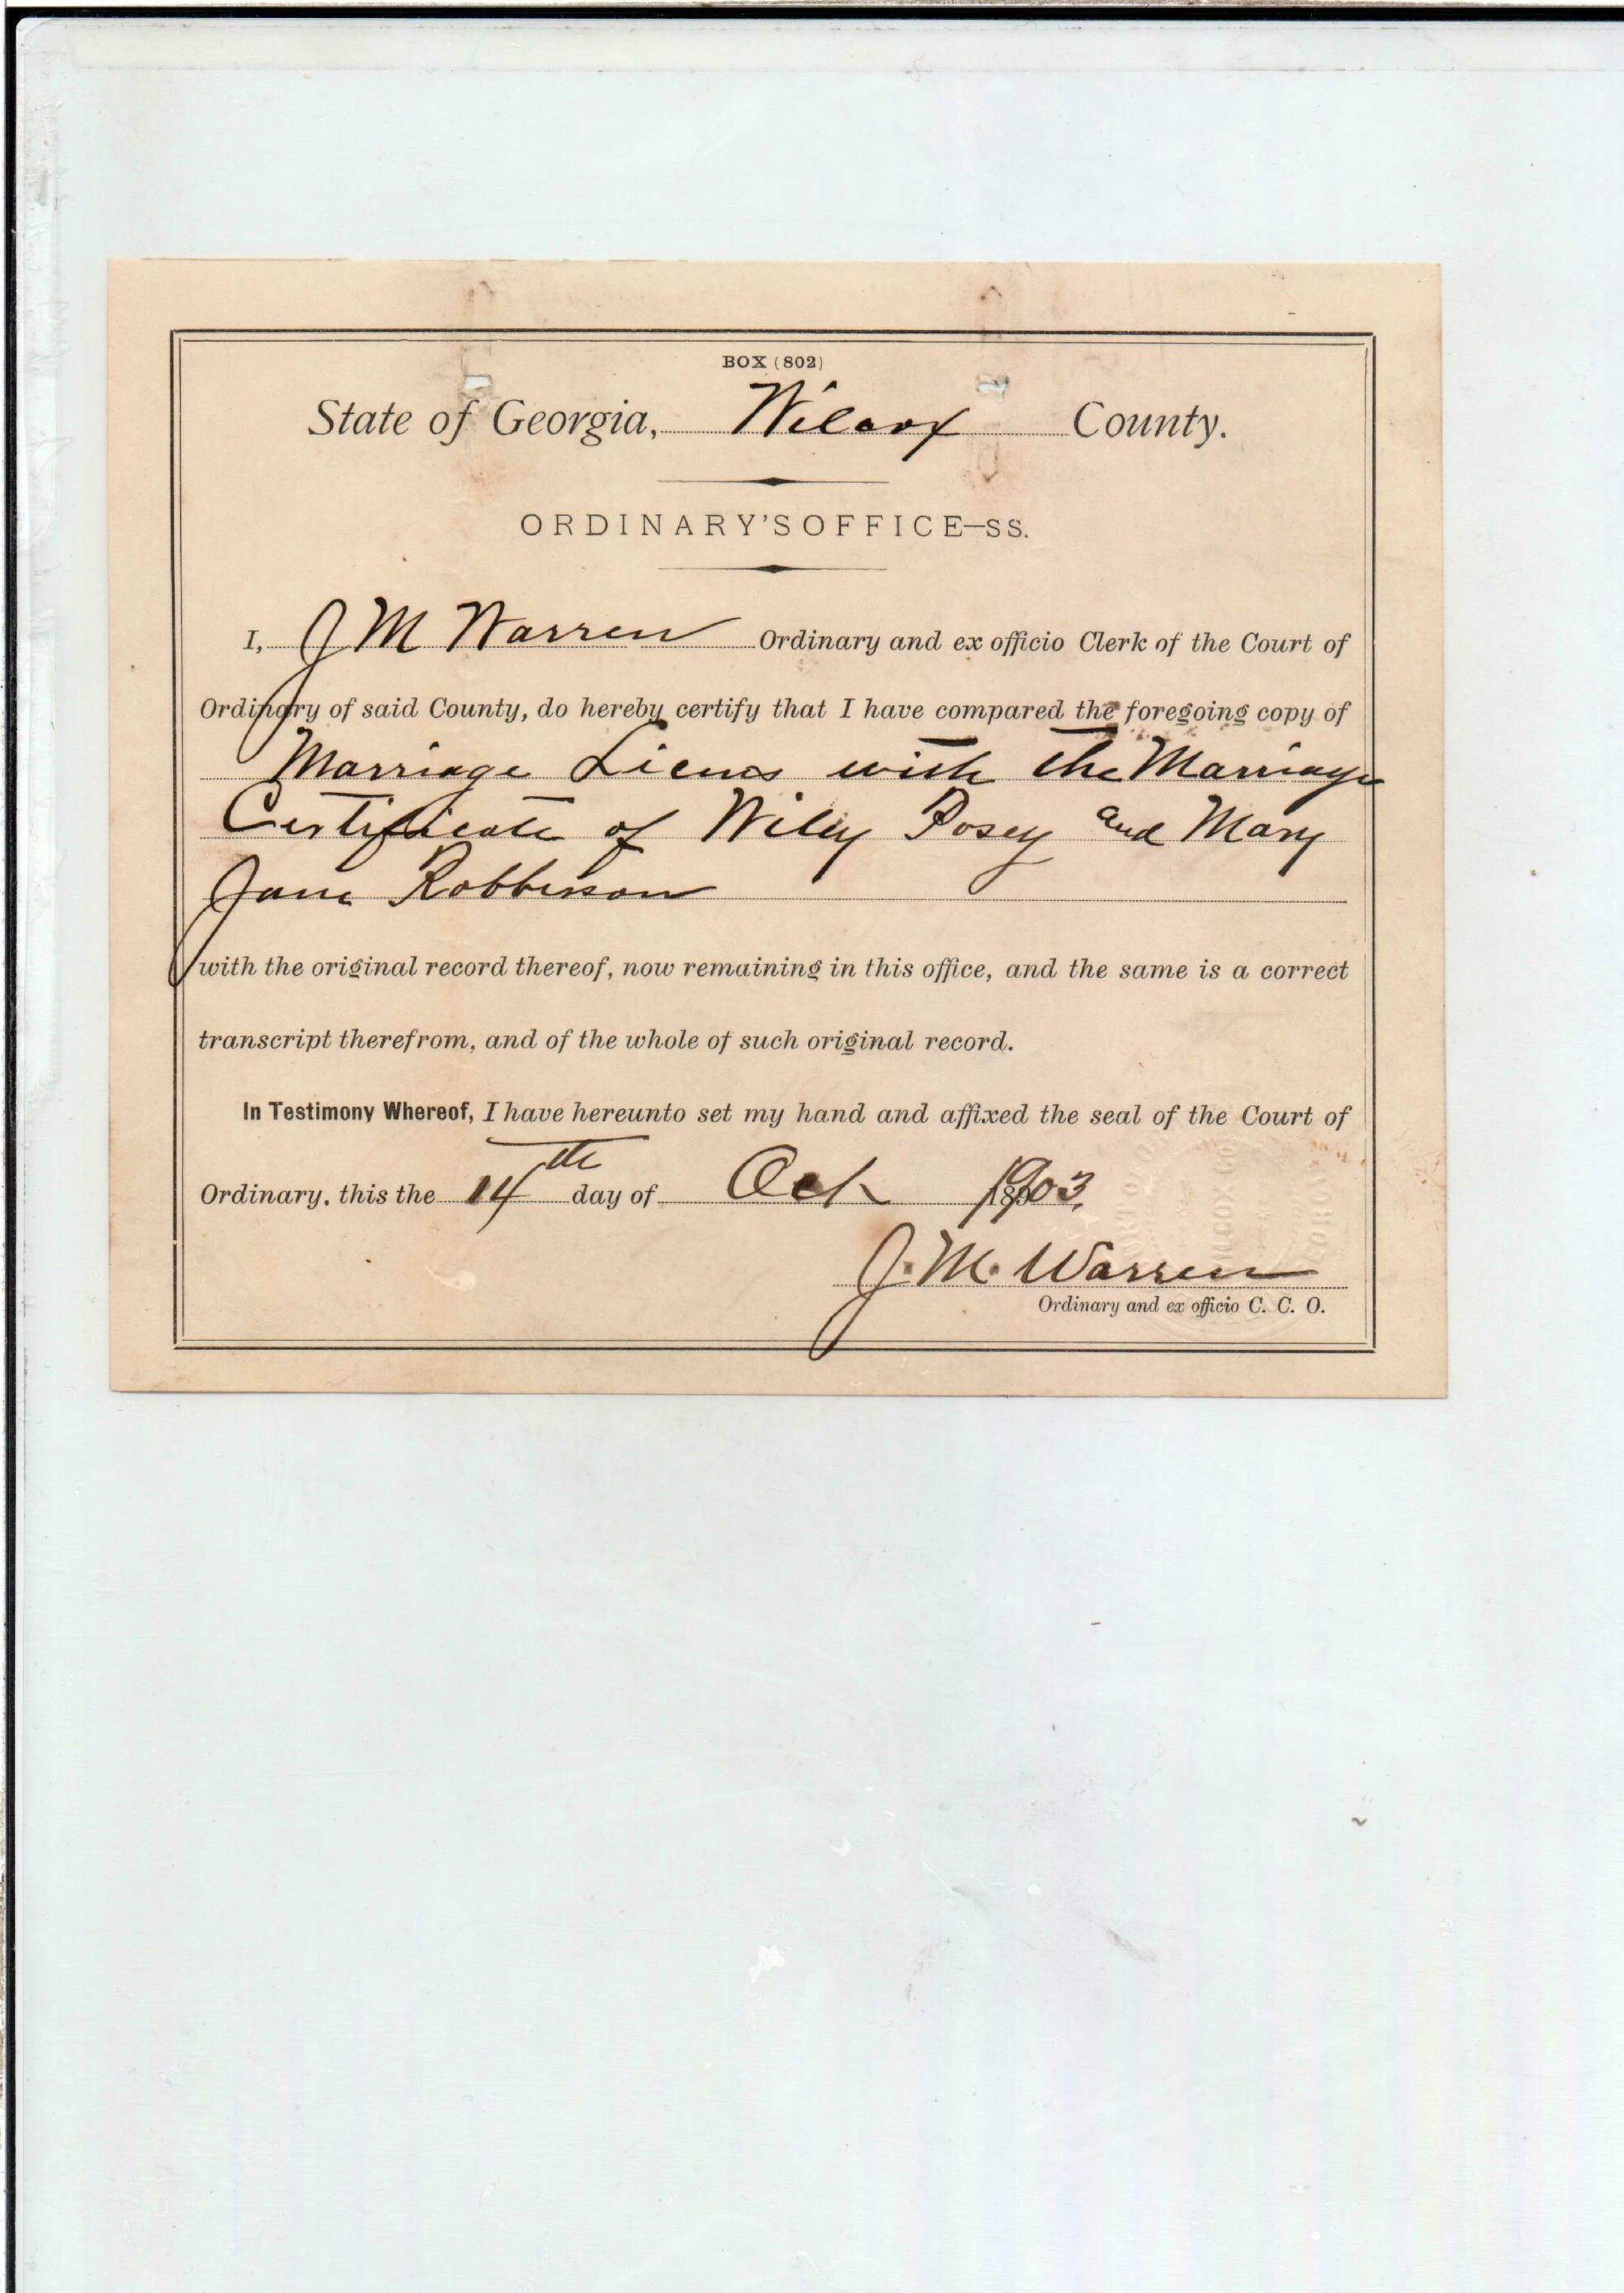 BOX (802)
State of Georgia, Wilcox County.
ORDINARY'S OFFICE—SS.
I, J M Warren Ordinary and ex officio Clerk of the Court of
Ordinary of said County, do hereby certify that I have compared the foregoing copy of
Marriage Licens with the Marriage
Certificate of Wiley Posey and Mary
Jane Robberson
with the original record thereof, now remaining in this office, and the same is a correct
transcript therefrom, and of the whole of such original record.
In Testimony Whereof, I have hereunto set my hand and affixed the seal of the Court of
Ordinary, this the 14th day of Oct 1903.
J. M. Warren
Ordinary and ex officio C. C. O.